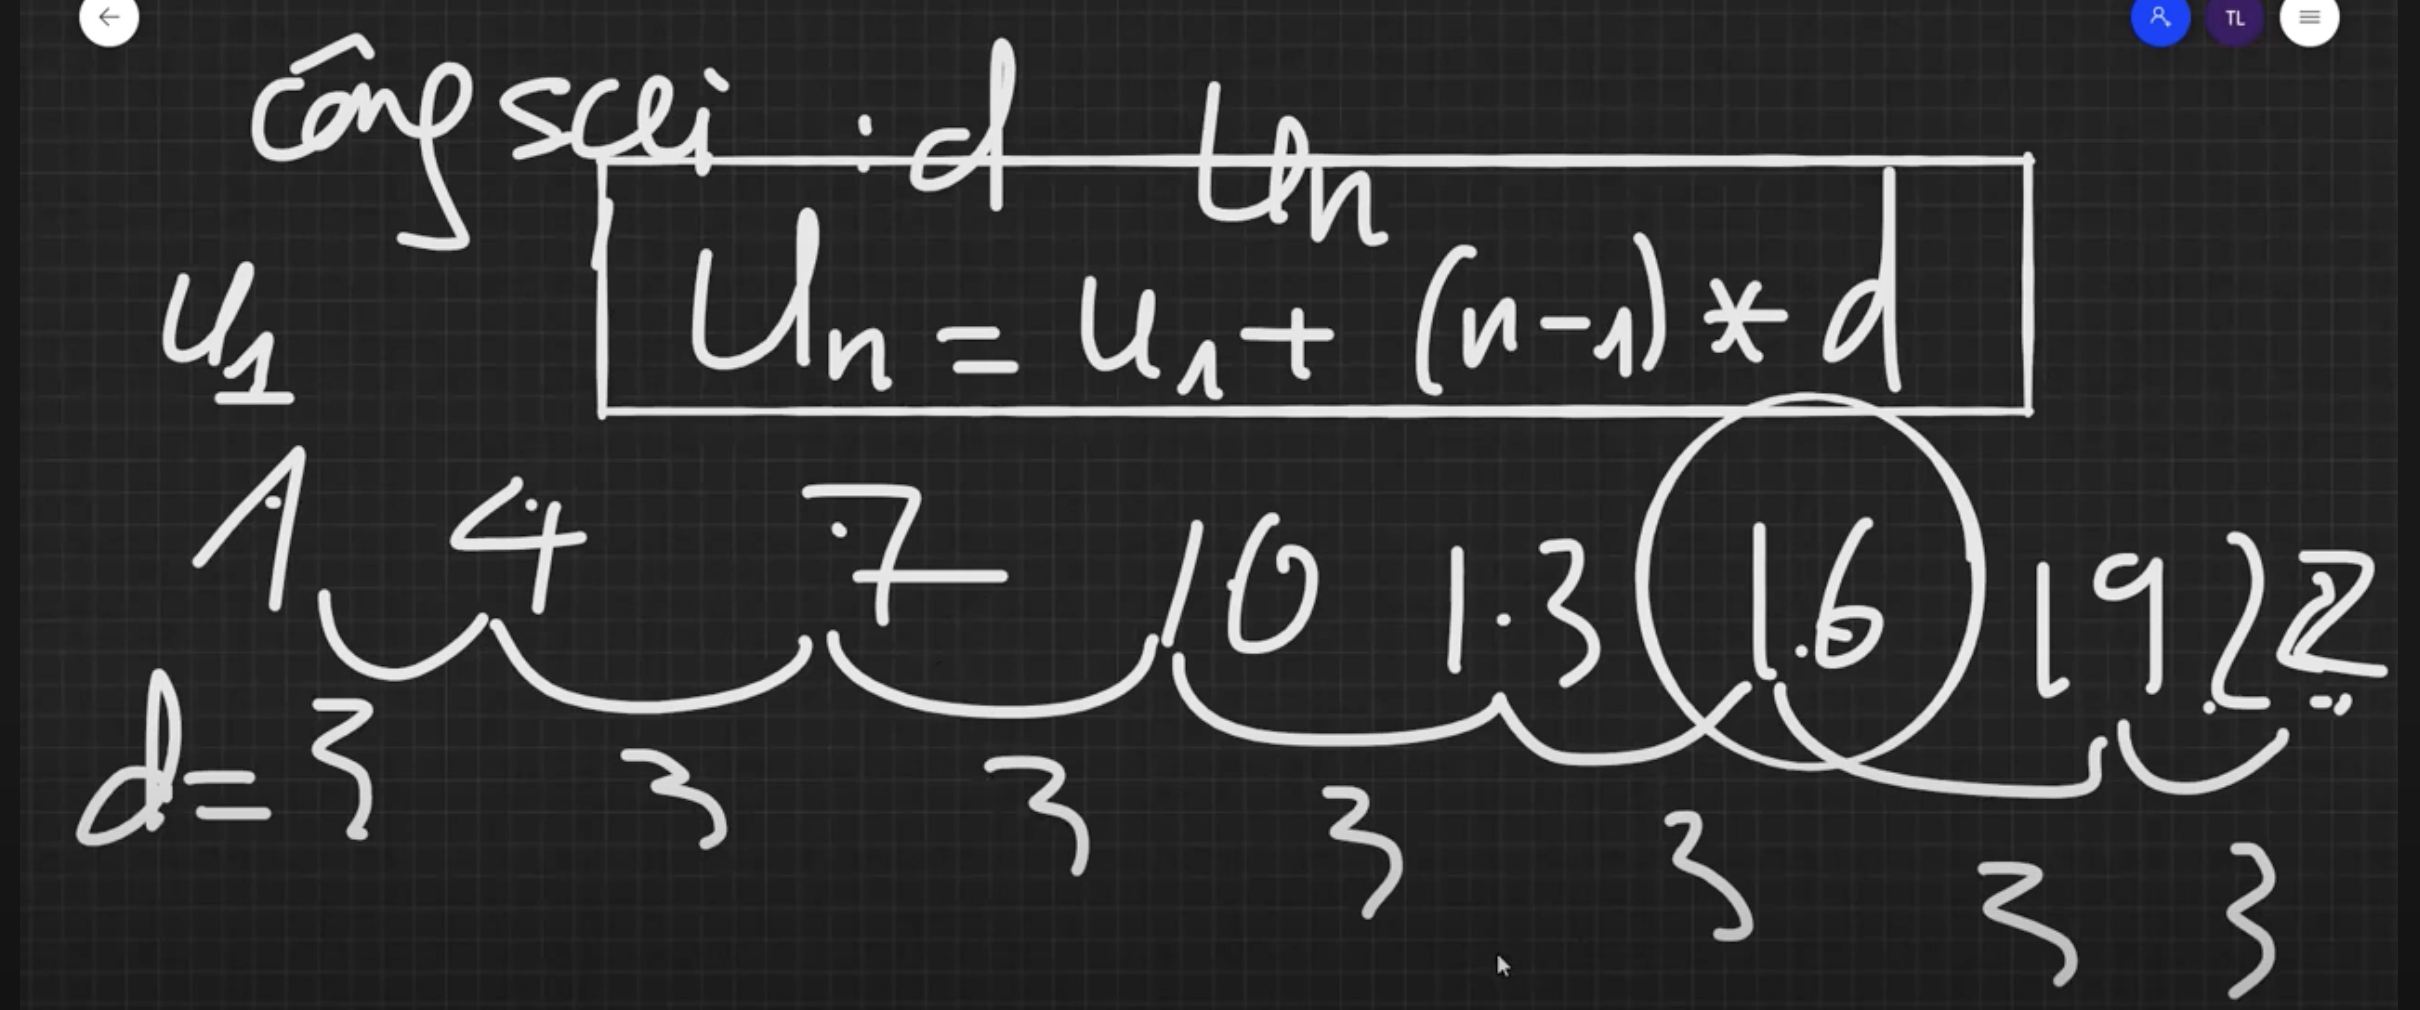 TL
công sai : d Un
U1
Un = U1 + (n-1) * d
1 4 7 10 13 16 19 22
d = 3 3 3 3 3 3 3